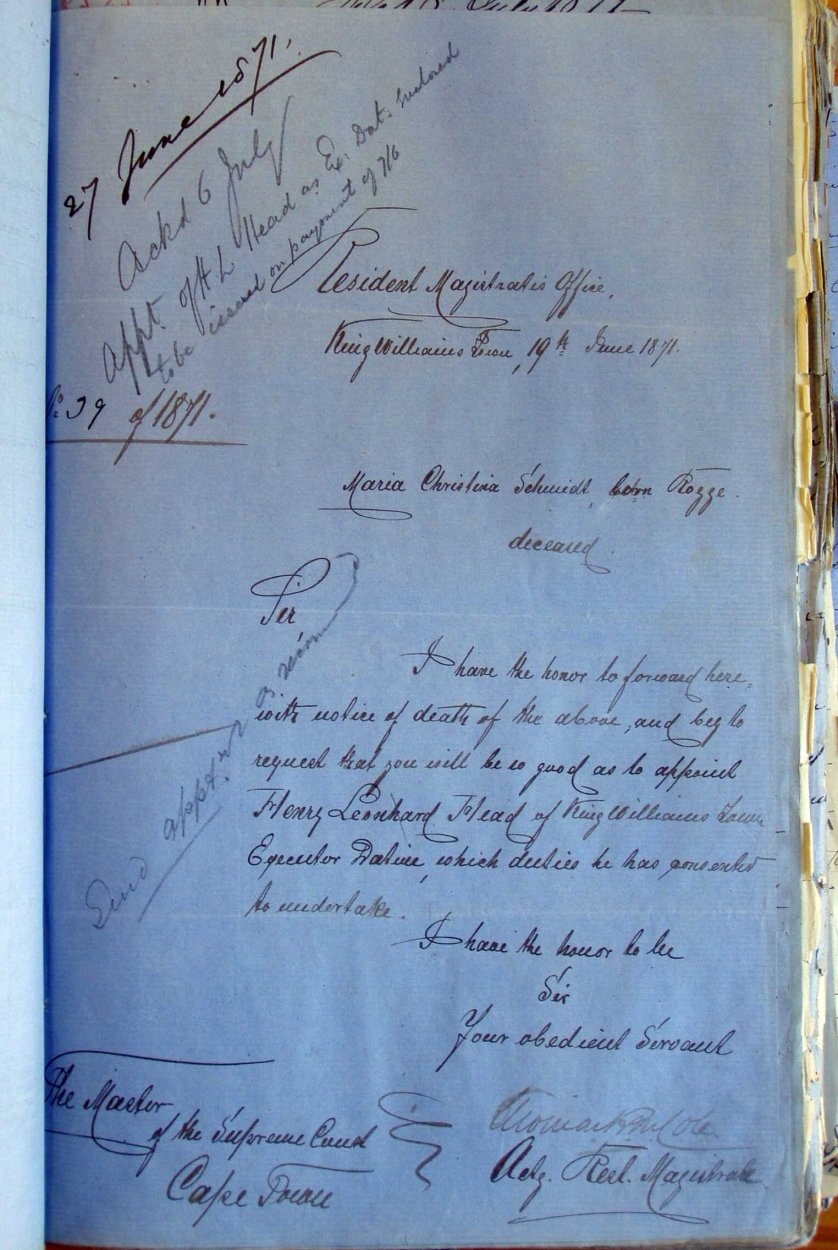 27 June 1871.
Ackd 6 July
Appt. of H L Head as Ex: Dat: enclosed
to be issued on payment of 7/6
Resident Magistrates Office,
King Williams Town, 19th June 1871.
39 of 1871.
Maria Christina Schmidt, born Rogge.
deceased.
Sir,
I have the honor to forward here=
with notice of death of the above, and beg to
request that you will be so good as to appoint
Henry Leonhard Head of King Williams Town
Executor Dative, which duties he has consented
to undertake.
Send appt.
I have the honor to be
Sir
Your obedient Servant
The Master
of the Supreme Court
Cape Town
Actg. Resl. Magistrate